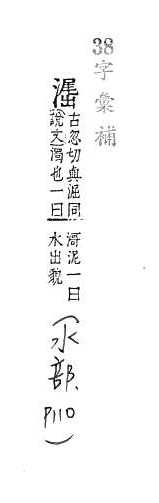 38字彙補
古忽切與淈同
說文濁也一曰
滒泥一曰
水出貌
(水部 P110)